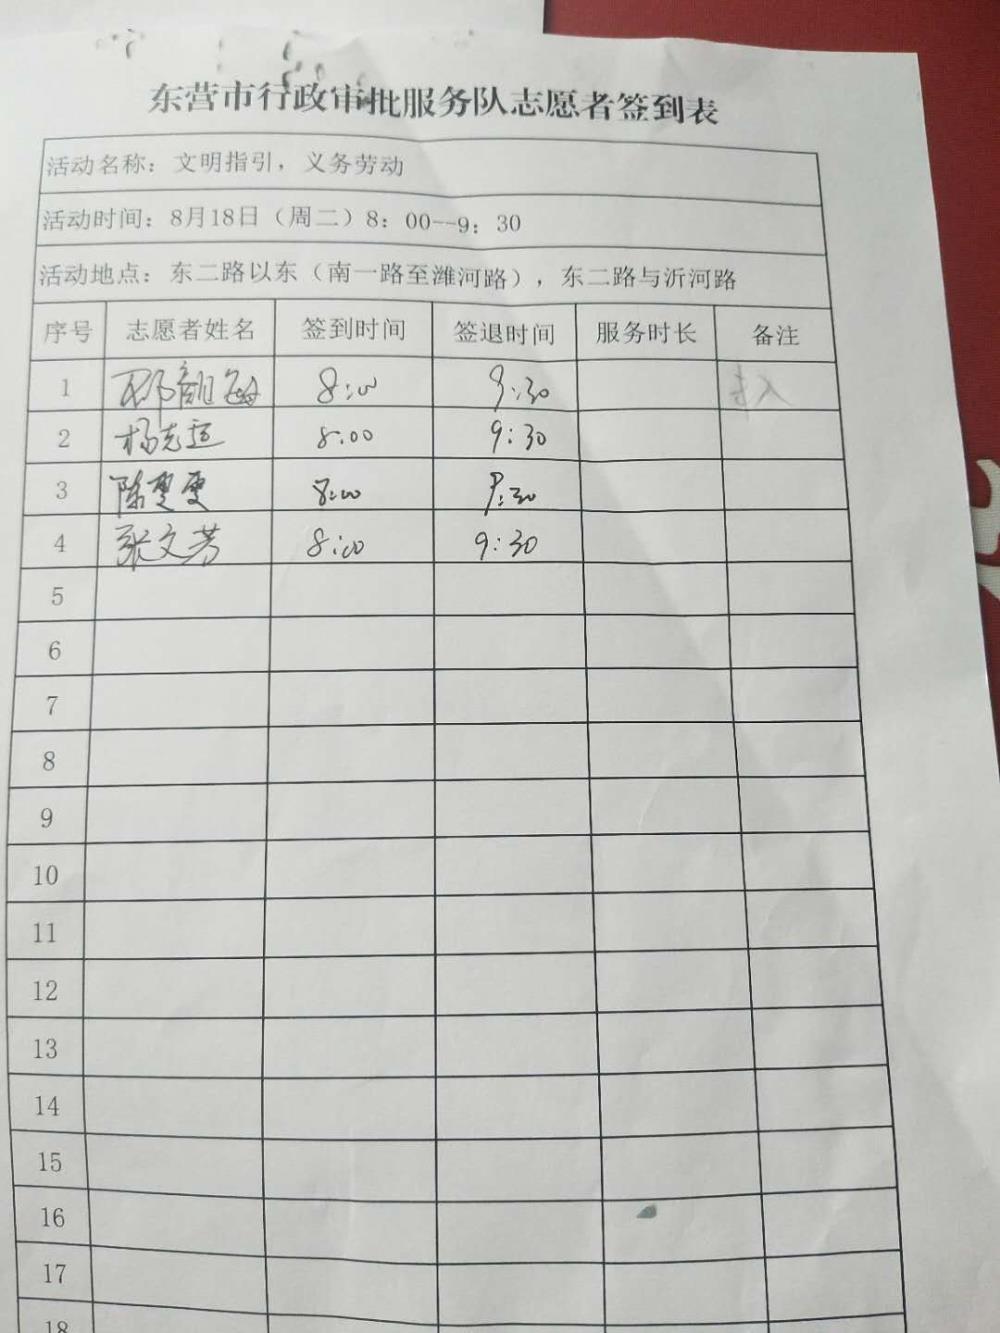 东营市行政审批服务队志愿者签到表
活动名称：文明指引，义务劳动
活动时间：8月18日（周二）8：00--9：30
活动地点：东二路以东（南一路至潍河路），东二路与沂河路
序号 志愿者姓名 签到时间 签退时间 服务时长 备注
1 8:00 9:30
2 杨志远 8:00 9:30
3 陈雯雯 8:00 9:30
4 张文芳 8:00 9:30
5
6
7
8
9
10
11
12
13
14
15
16
17
18